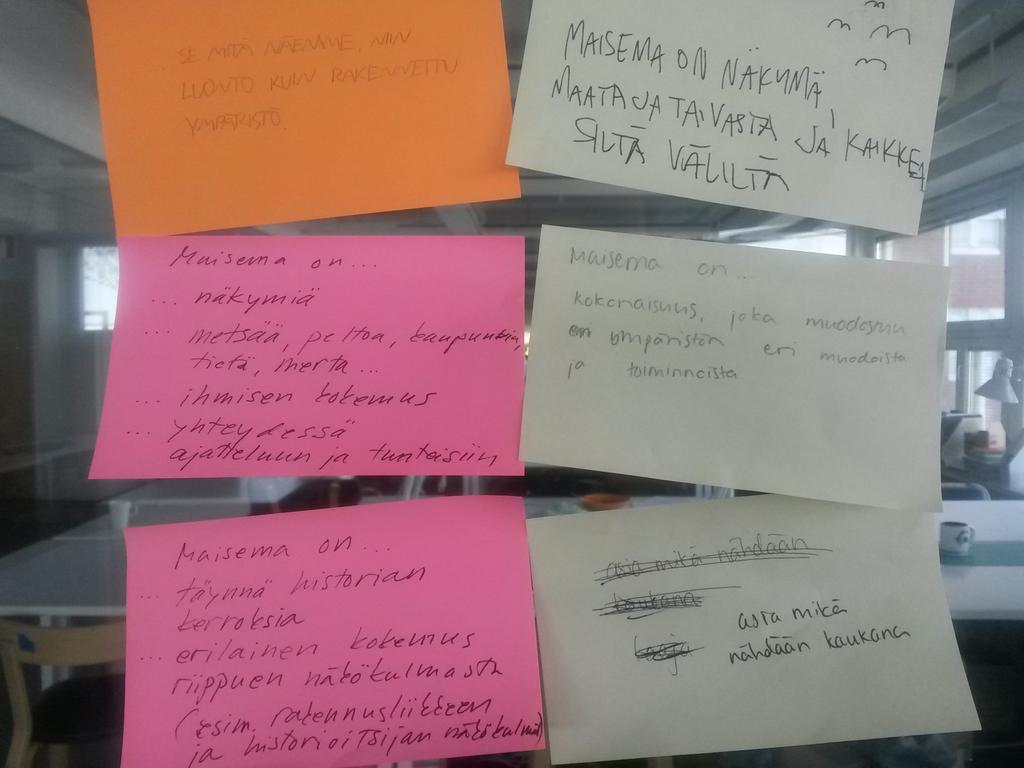 SE MITÄ NÄEMME, NIIN
LUONTO KUIN RAKENNETTU
YMPÄRISTÖ.
MAISEMA ON NÄKYMÄ,
MAATA JA TAIVASTA JA KAIKKEA
SILTÄ VÄLILTÄ
Maisema on...
... näkymiä
... metsää, peltoa, kaupunkia,
tietä, merta...
... ihmisen kokemus
... yhteydessä
ajatteluun ja tunteisiin
Maisema on...
kokonaisuus, joka muodostuu
eri ympäristön eri muodoista
ja toiminnoista
Maisema on...
... täynnä historian
kerroksia
... erilainen kokemus
riippuen näkökulmasta
(esim. rakennusliikkeen
ja historioitsijan näkökulmat)
asia mikä nähdään
kaukana
laaja
asia mikä
nähdään kaukana